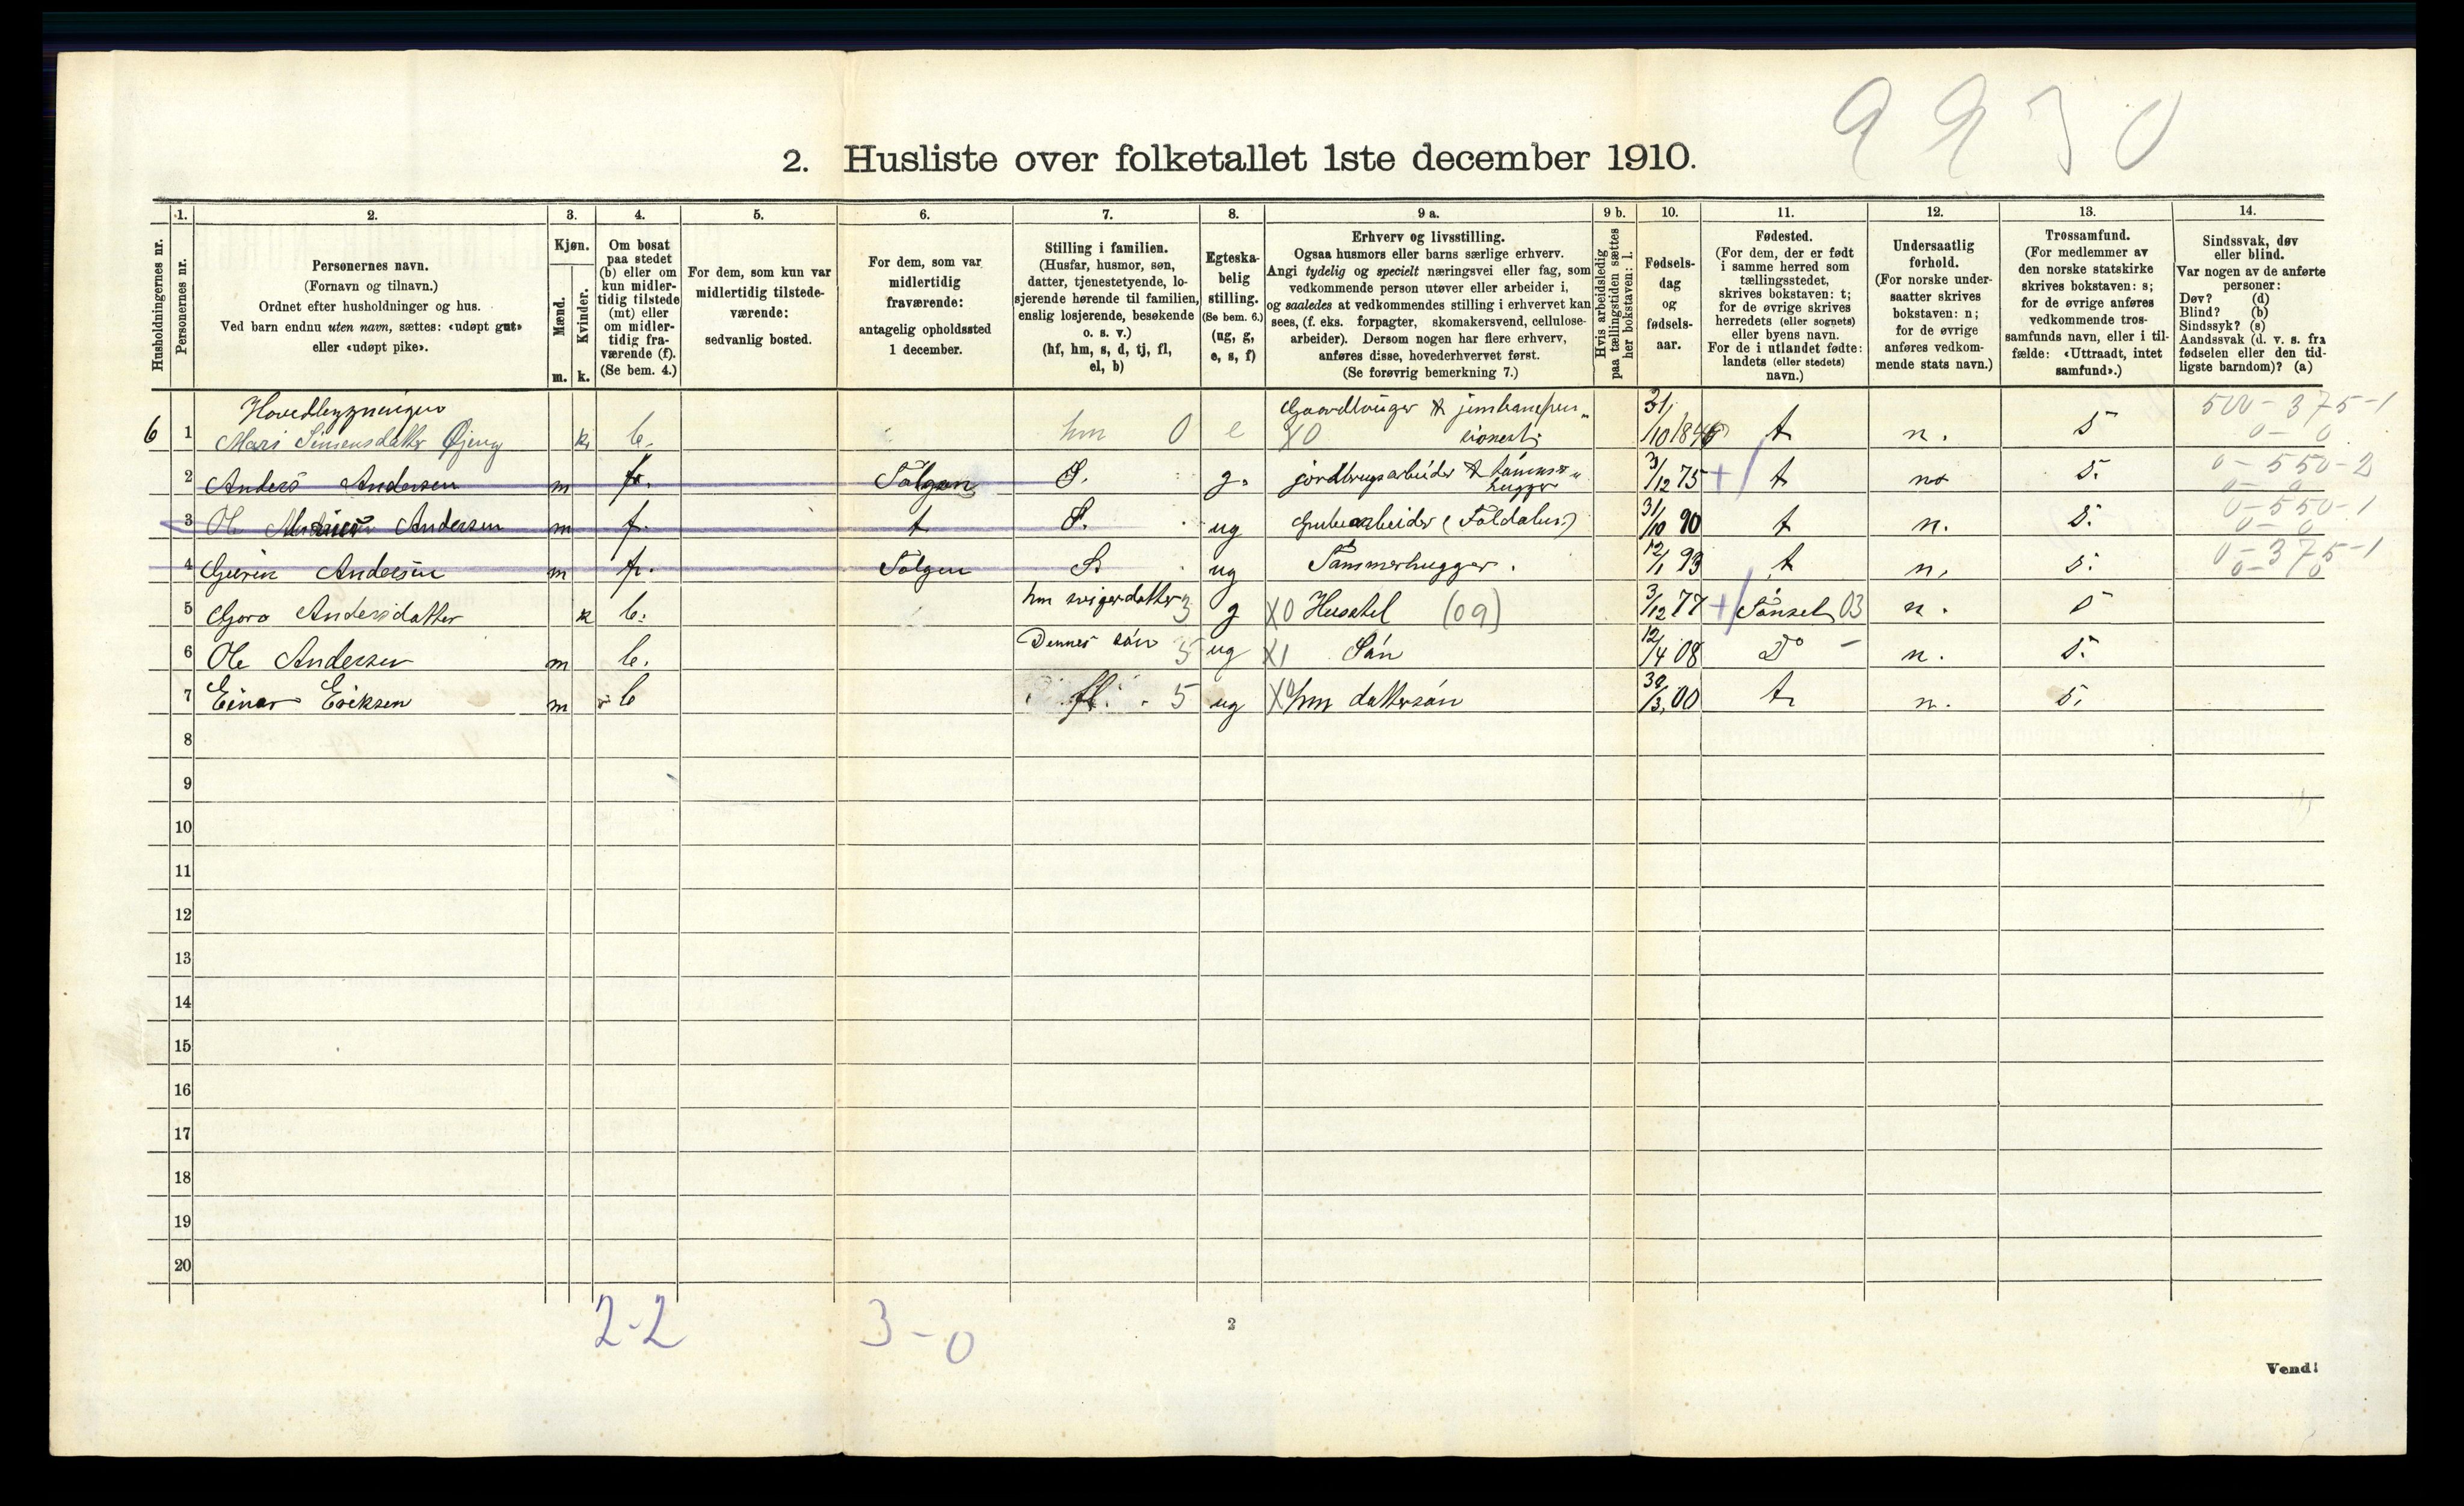 9930
2. Husliste over folketallet 1ste december 1910.
1. 2. 3. 4. 5. 6. 7. 8. 9 a. 9 b. 10. 11. 12. 13. 14.
Husholdningernes nr.
Personernes nr.
Personernes navn.
(Fornavn og tilnavn.)
Ordnet efter husholdninger og hus.
Ved barn endnu uten navn, sættes: «udøpt gut»
eller «udøpt pike».
Kjøn.
Mænd.
Kvinder.
m. k.
Om bosat
paa stedet
(b) eller om
kun midler-
tidig tilstede
(mt) eller
om midler-
tidig fra-
værende (f).
(Se bem. 4.)
For dem, som kun var
midlertidig tilstede-
værende:
sedvanlig bosted.
For dem, som var
midlertidig
fraværende:
antagelig opholdssted
1 december.
Stilling i familien.
(Husfar, husmor, søn,
datter, tjenestetyende, lo-
sjerende hørende til familien,
enslig losjerende, besøkende
o. s. v.)
(hf, hm, s, d, tj, fl,
el, b)
Egteska-
belig
stilling.
(Se bem. 6.)
(ug, g,
e, s, f)
Erhverv og livsstilling.
Ogsaa husmors eller barns særlige erhverv.
Angi tydelig og specielt næringsvei eller fag, som
vedkommende person utøver eller arbeider i,
og saaledes at vedkommendes stilling i erhvervet kan
sees, (f. eks. forpagter, skomakersvend, cellulose-
arbeider). Dersom nogen har flere erhverv,
anføres disse, hovederhvervet først.
(Se forøvrig bemerkning 7.)
Hvis arbeidsledig
paa tællingstiden sættes
her bokstaven: l.
Fødsels-
dag
og
fødsels-
aar.
Fødested.
(For dem, der er født
i samme herred som
tællingsstedet,
skrives bokstaven: t;
for de øvrige skrives
herredets (eller sognets)
eller byens navn.
For de i utlandet fødte:
landets (eller stedets)
navn.)
Undersaatlig
forhold.
(For norske under-
saatter skrives
bokstaven: n;
for de øvrige
anføres vedkom-
mende stats navn.)
Trossamfund.
(For medlemmer av
den norske statskirke
skrives bokstaven: s;
for de øvrige anføres
vedkommende tros-
samfunds navn, eller i til-
fælde: «Uttraadt, intet
samfund».)
Sindssvak, døv
eller blind.
Var nogen av de anførte
personer:
Døv? (d)
Blind? (b)
Sindssyk? (s)
Aandssvak (d. v. s. fra
fødselen eller den tid-
ligste barndom)? (a)
Hovedbygningen
6 1 Mari Simensdatter Øjeng k. b. hm 0 e X0 Gaardbruger & jernbanepen- sionest. 31/10 184 t n. s 500-375-1 0-0
2 Anders Andersen m f. Tolgen S. g. jordbrugsarbeider & tømmer- hugger 3/12 75 +/ t n. s. 0-550-2 0-0
3 Ol Andersen m f. t S. ug Grubearbeider (Foldalen) 31/10 90 t n. s. 0-550-1 0-0
4 Andersen m f. Tolgen S. ug Tømmerhugger. 12/1 93 t n. s. 0-375-1 0-0
5 Goro Andersdatter k b. hm svigerdatter 3 g X0 Husstel (09) 3/12 77 +/ Tønset 03 n. s
6 Ole Andersen m b. Dennes søn 5 ug X1 Søn 12/4 08 Do - n. s.
7 Einar Eriksen m b fl. 5 ug X0 hm dattersøn 30/3 00 t. n. s.
8
9
10
11
12
13
14
15
16
17
18
19
20
2-2 3-0
2
Vend!